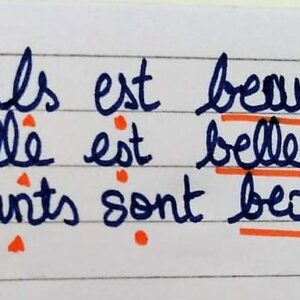 ls est beau
le est belle
nts sont bea